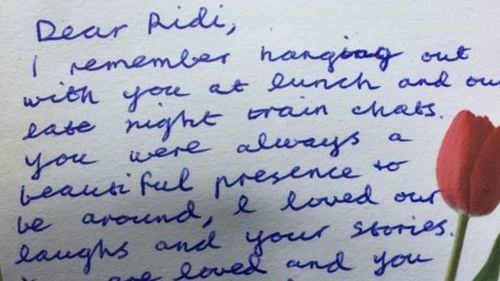 Dear Ridi,
I remember hanging out
with you at lunch and our
late night train chats.
You were always a
beautiful presence to
be around, I loved our
laughs and your stories.
You are loved and you